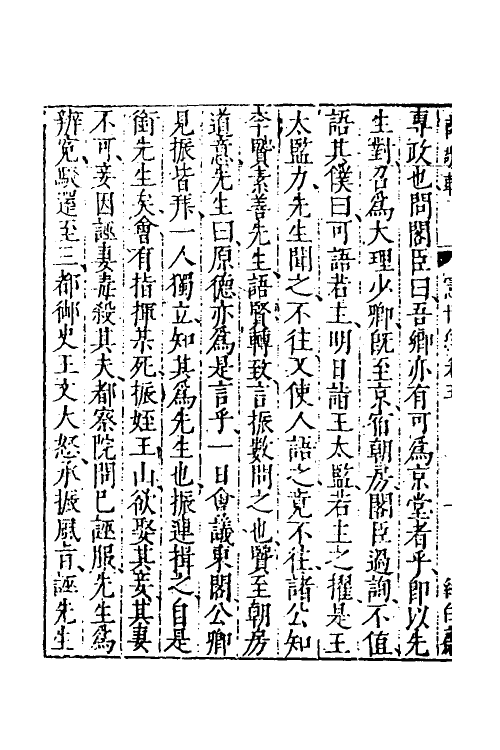 專政也問閣臣曰吾鄉亦有可爲京堂者乎卽以先
生對召爲大理少卿旣至京宿朝房閣臣過詢不值
語其僕曰可語若主明日詣王太監若主之擢是王
太監力先生聞之不往又使人語之竟不往諸公知
李賢素善先生語賢轉致言振數問之也賢至朝房
道意先生曰原德亦爲是言乎一日會議東閣公卿
見振皆拜一人獨立知其爲先生也振連揖之自是
銜先生矣會有指揮某死振姪王山欲娶其妾其妻
不可妾因誣妻毒殺其夫都察院問已誣服先生爲
辨冤駁還至三都御史王文大怒承振風旨誣先生